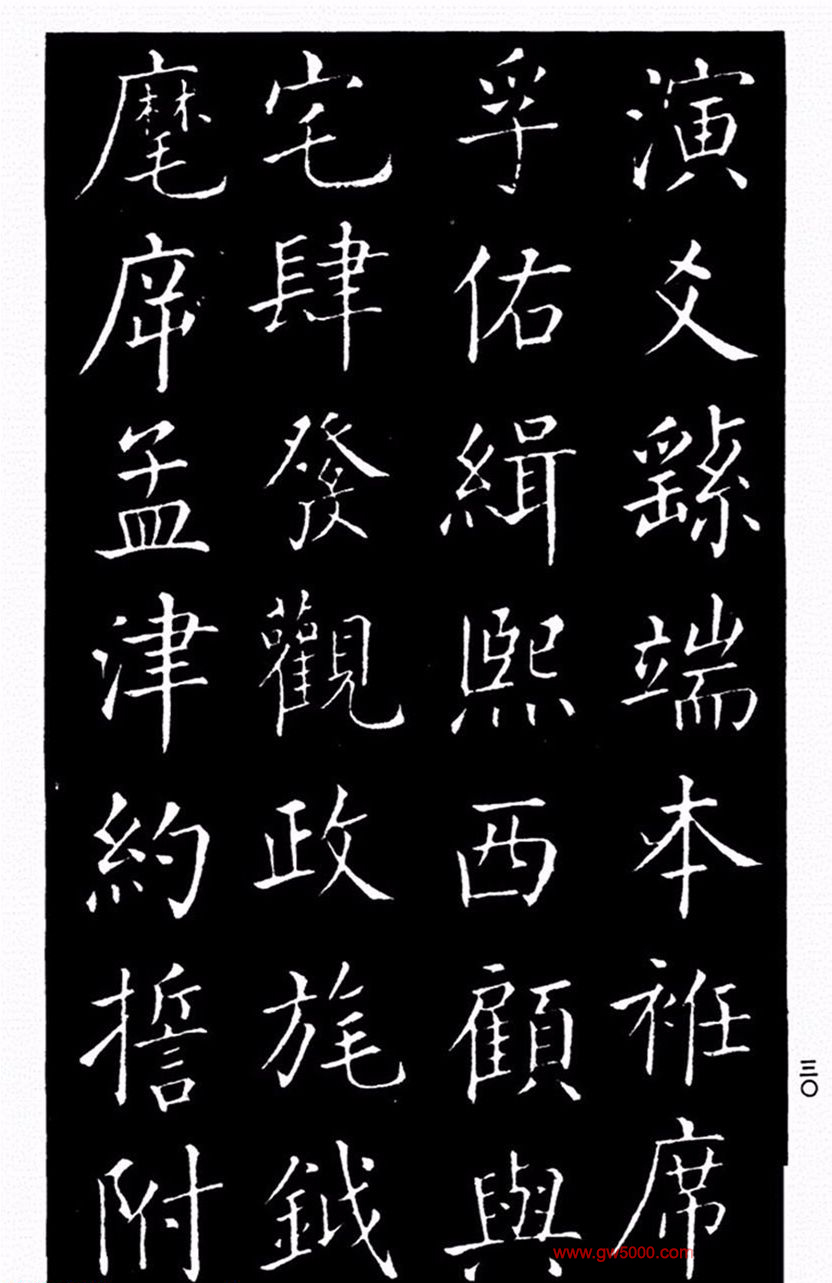 演爻繇端本袵席
孚佑緝熙西顧與
宅肆發觀政旄鉞
麾斥孟津約誓附
三〇
www.gw5000.com